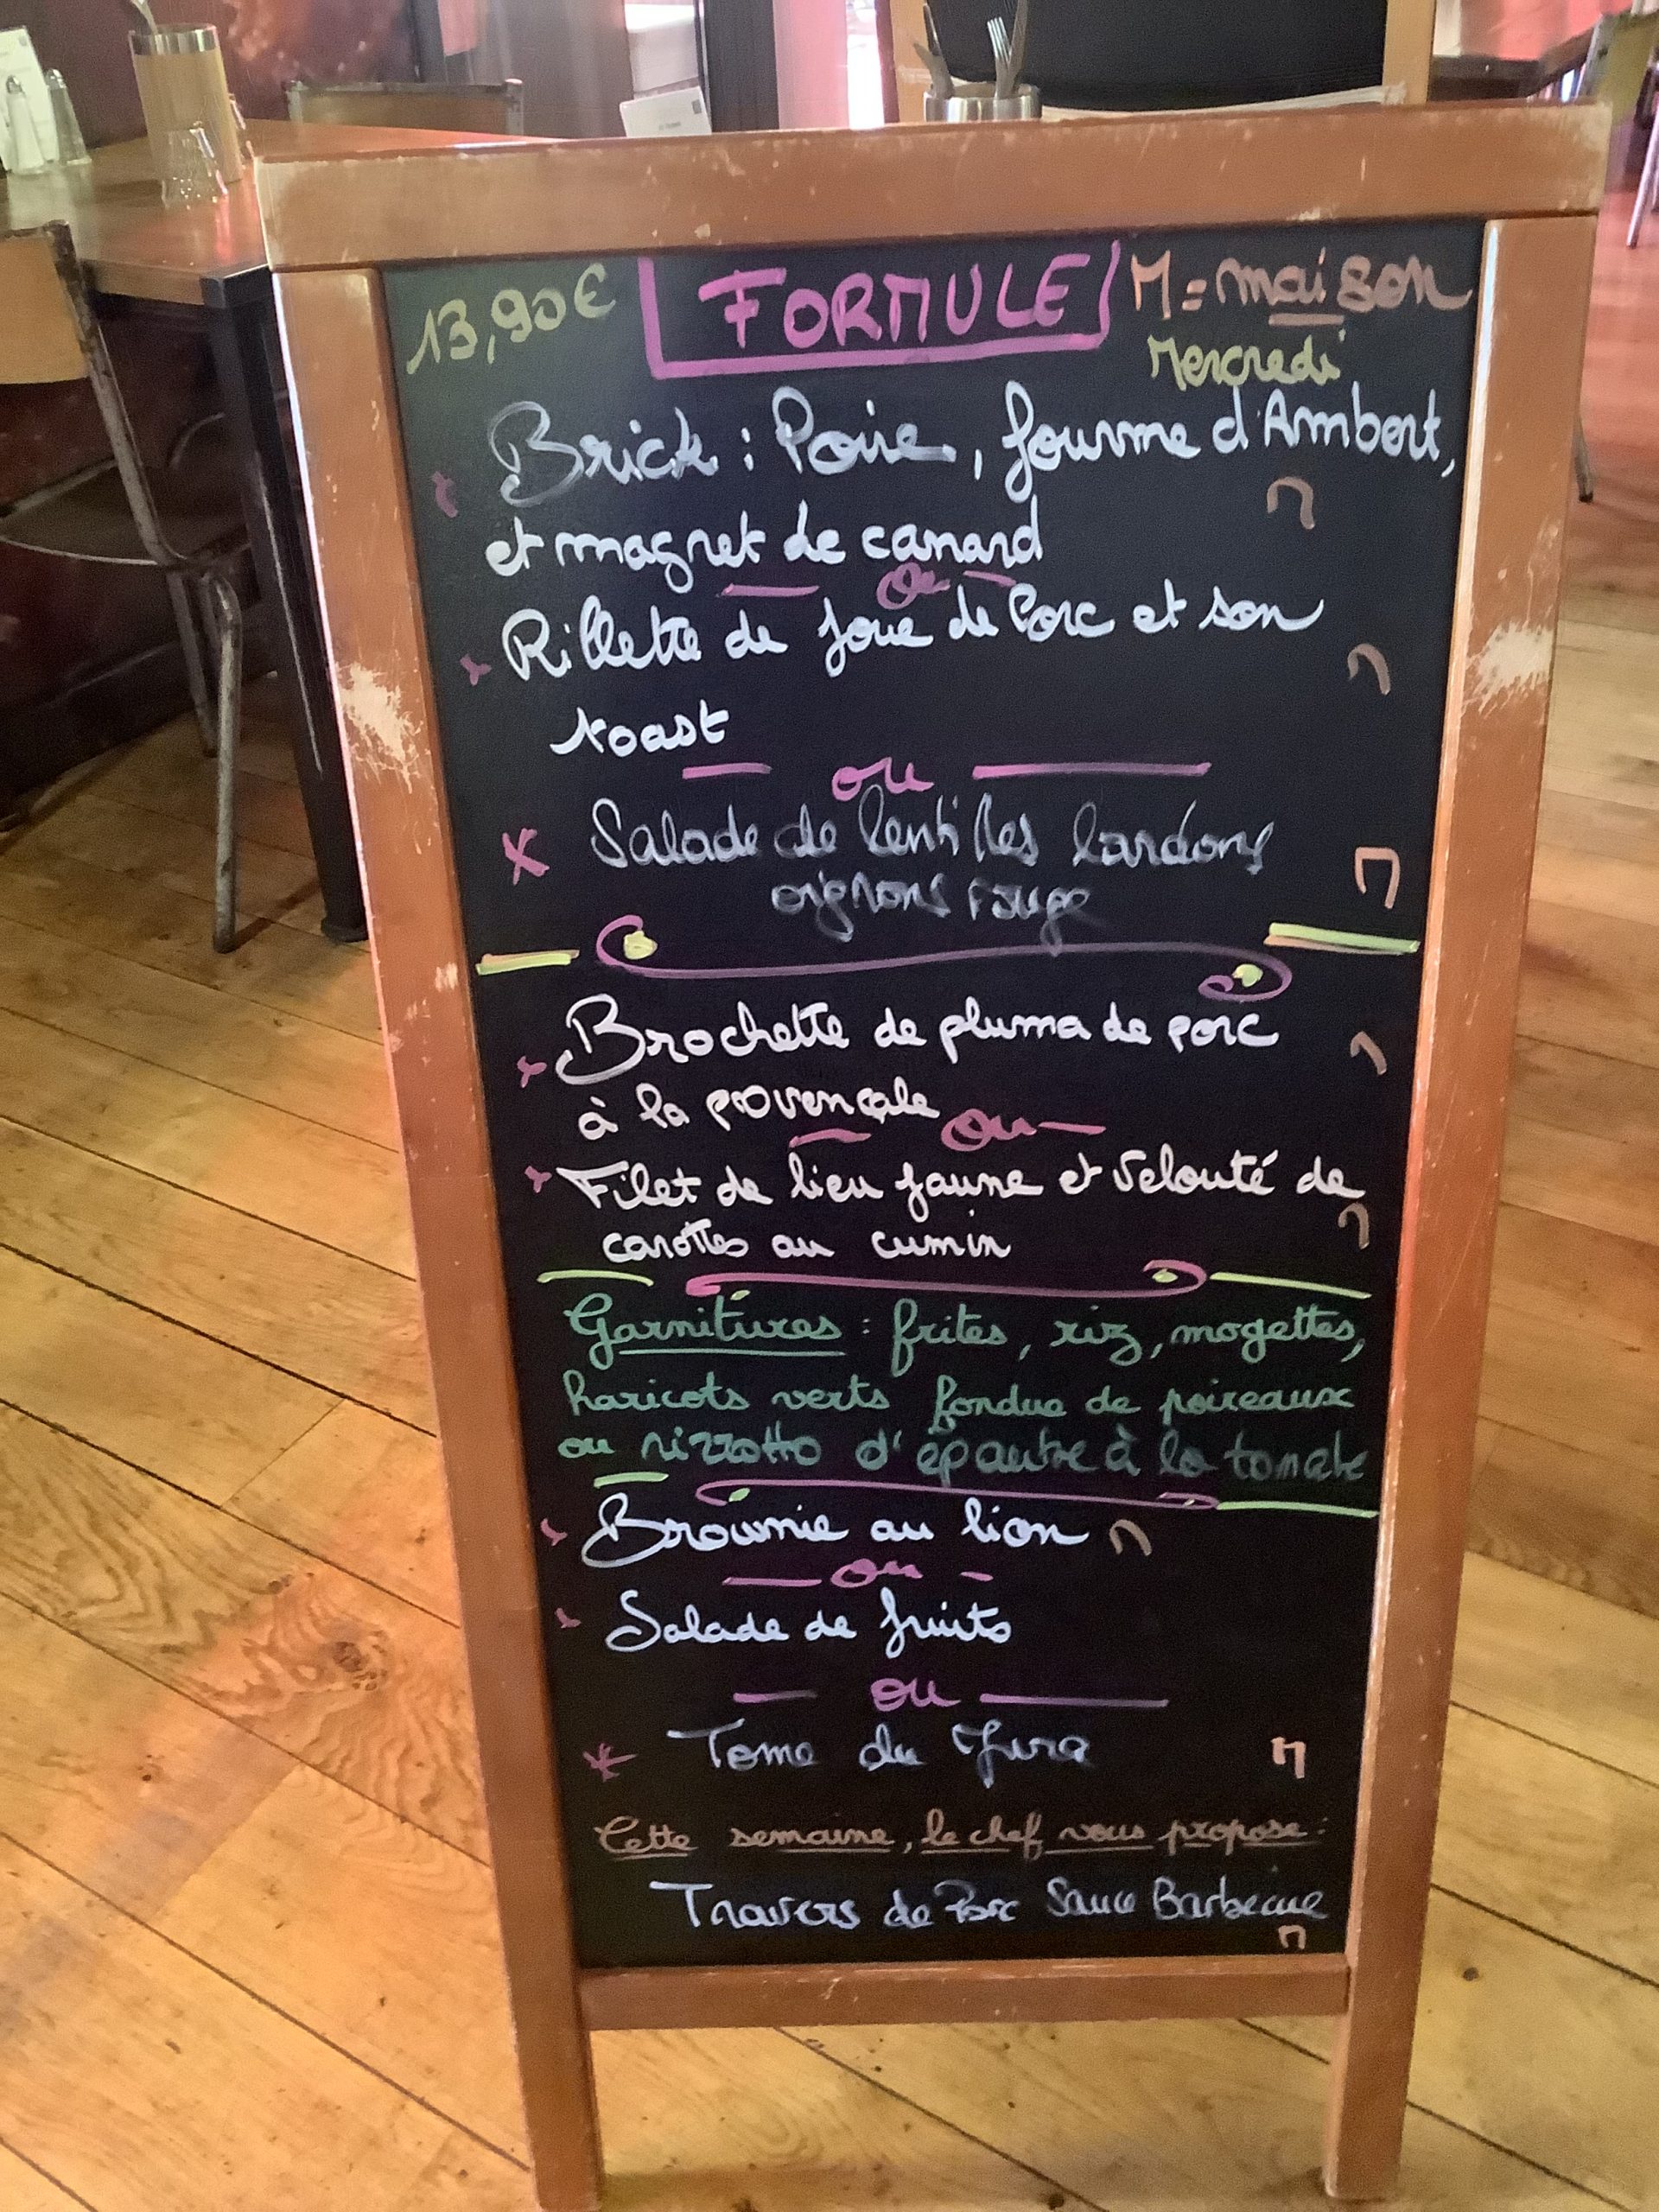 13,90€ FORMULE M = maison
Mercredi
Brick : Poire, fourme d'Ambert,
M
et magret de canard
ou
Rillette de joue de Porc et son
M
toast
ou
Salade de lentilles lardons
M
oignons rouge
Brochette de pluma de porc
M
à la provençale
ou
Filet de lieu jaune et velouté de
M
carottes au cumin
Garnitures : frites, riz, mogettes,
haricots verts fondue de poireaux
ou rizzotto d'épautre à la tomate
Brownie au lion M
ou
Salade de fruits
ou
Tome du Jura M
Cette semaine, le chef vous propose :
Travers de Porc Sauce Barbecue
M